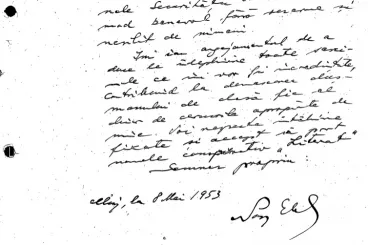 nele Securității
mod benevol fără rezerve și
nesilit de nimeni.
Îmi iau angajamentul de a
duce la îndeplinire toate sarci-
nile ce îmi vor fi încredințate,
contribuind la demascarea duș-
manului de clasă fie el
chiar de cercurile apropiate de
mine. Voi respecta întâlnirile
fixate și accept să port
numele conspirativ „Literat”
Semnez propriu:
Cluj, la 8 Mai 1953